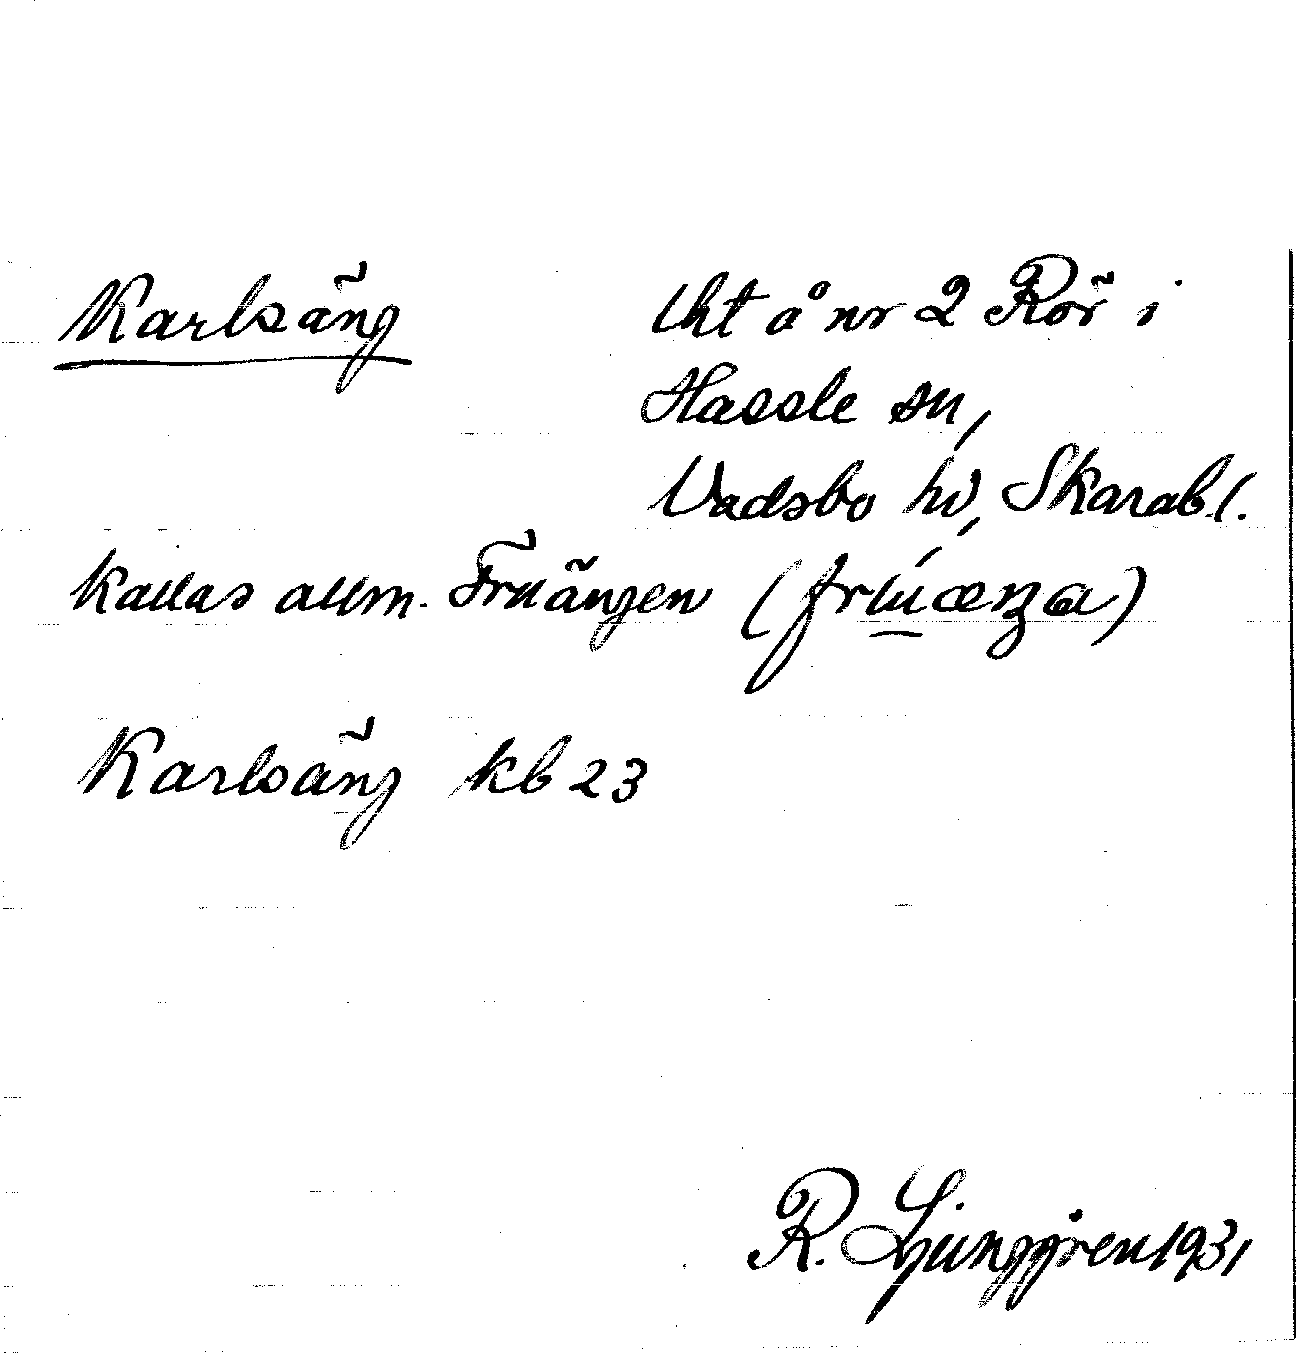 Karlsäng lht å nr 2 Rör i
Hassle sn,
Vadsbo hd, Skarab. l.
kallas allm. Fruängen (
Karlsäng kb 23
R. Ljunggren 1931